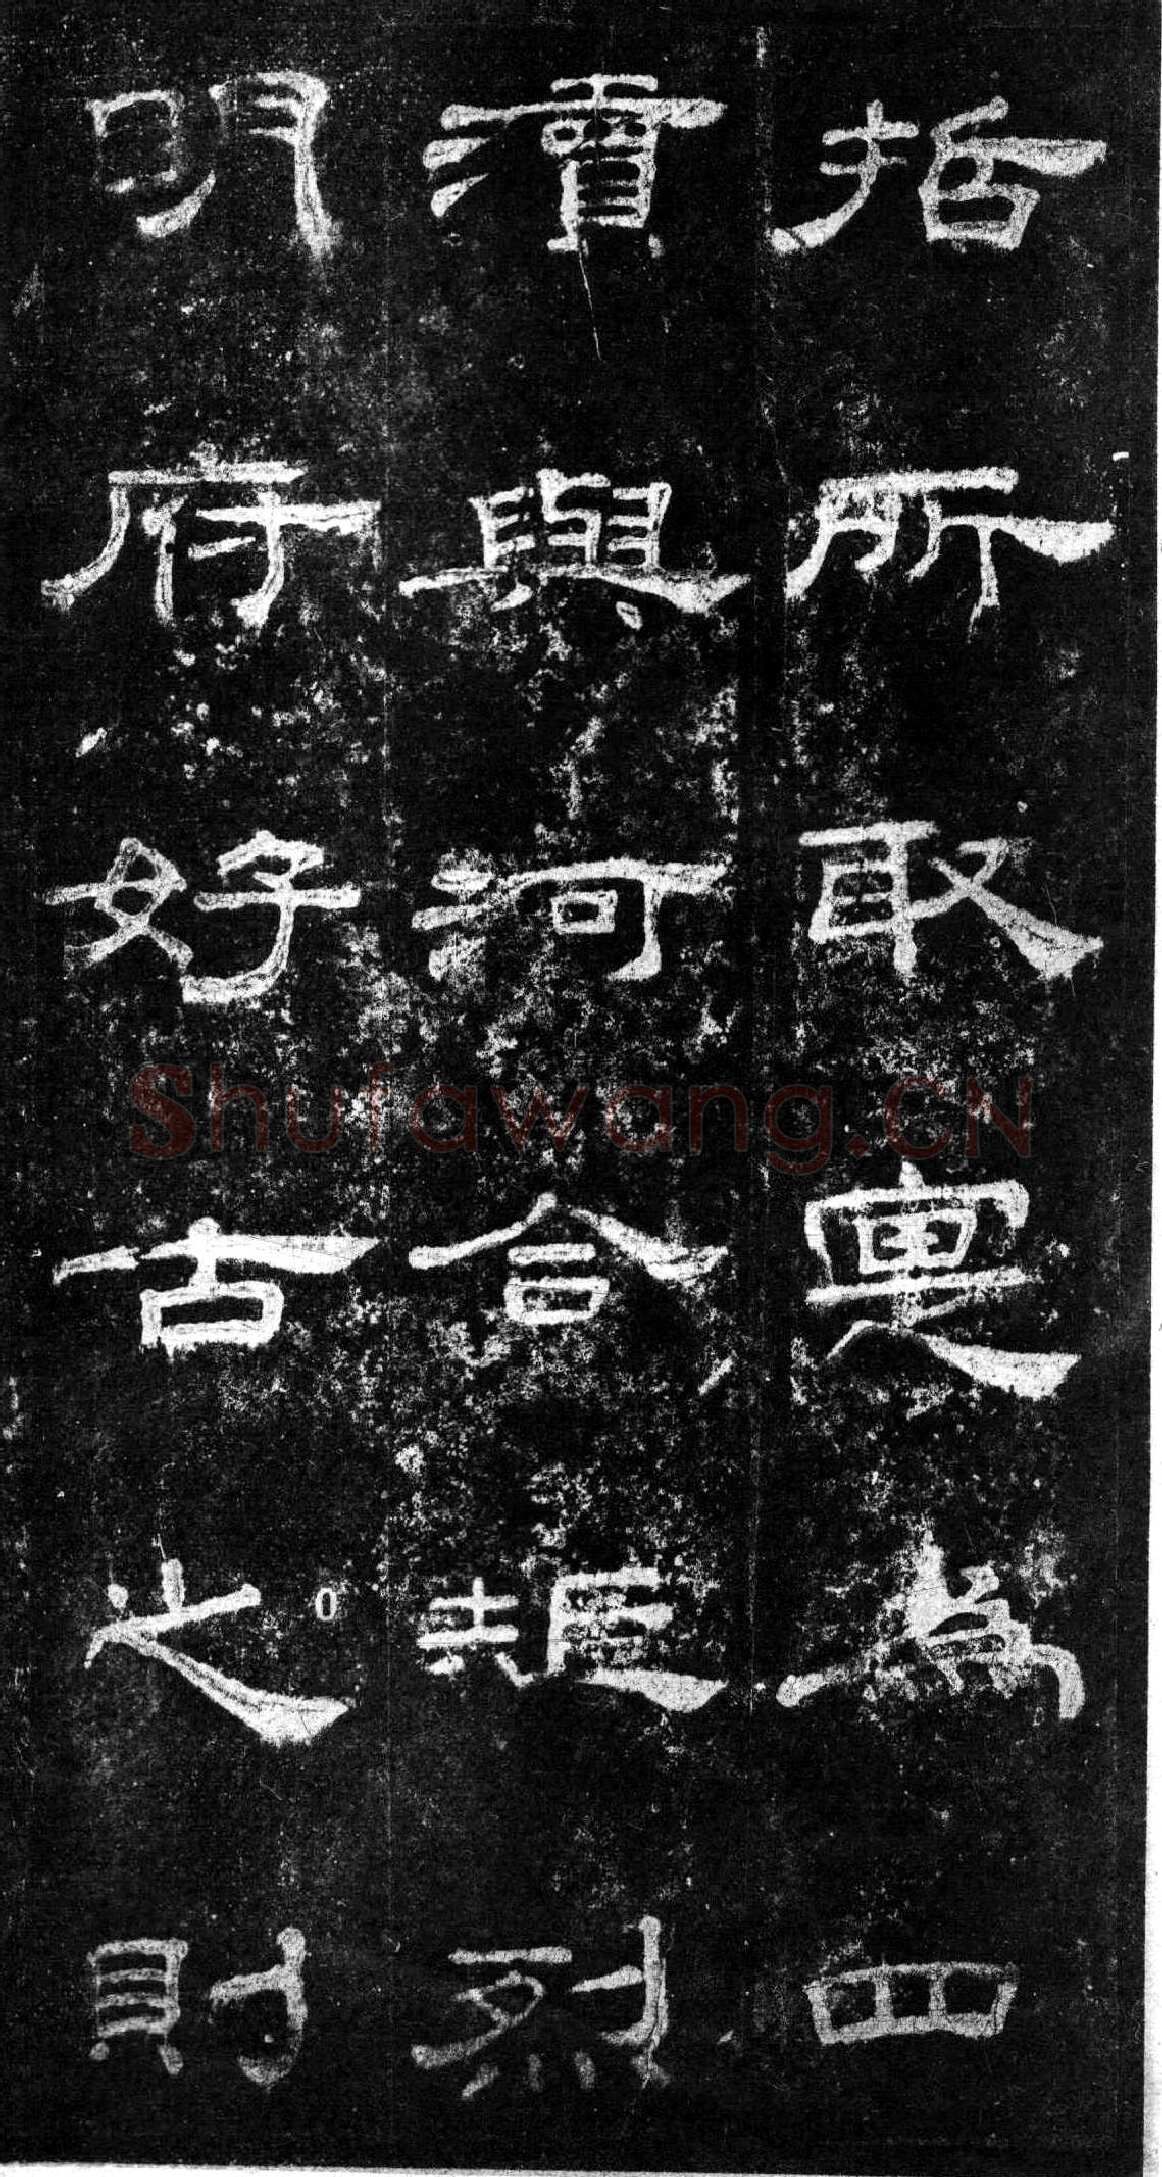 哲所取寔為四
瀆與河合矩烈
明府好古之則
Shufawang.CN
0